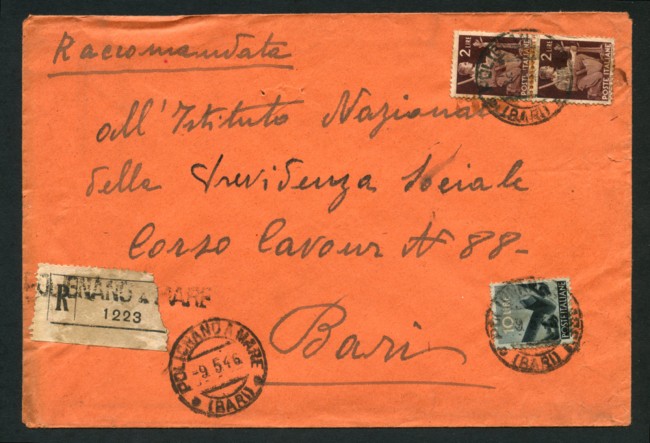 Raccomandata
2 LIRE
POSTE ITALIANE
2 LIRE
POSTE ITALIANE
(BARI)
all'Istituto Nazionale
della Previdenza Sociale
Corso Cavour N 88-
Bari
R
POLIGNANO A MARE
1223
POLIGNANO A MARE
-9.5.46
(BARI)
10 LIRE
POSTE ITALIANE
(BARI)